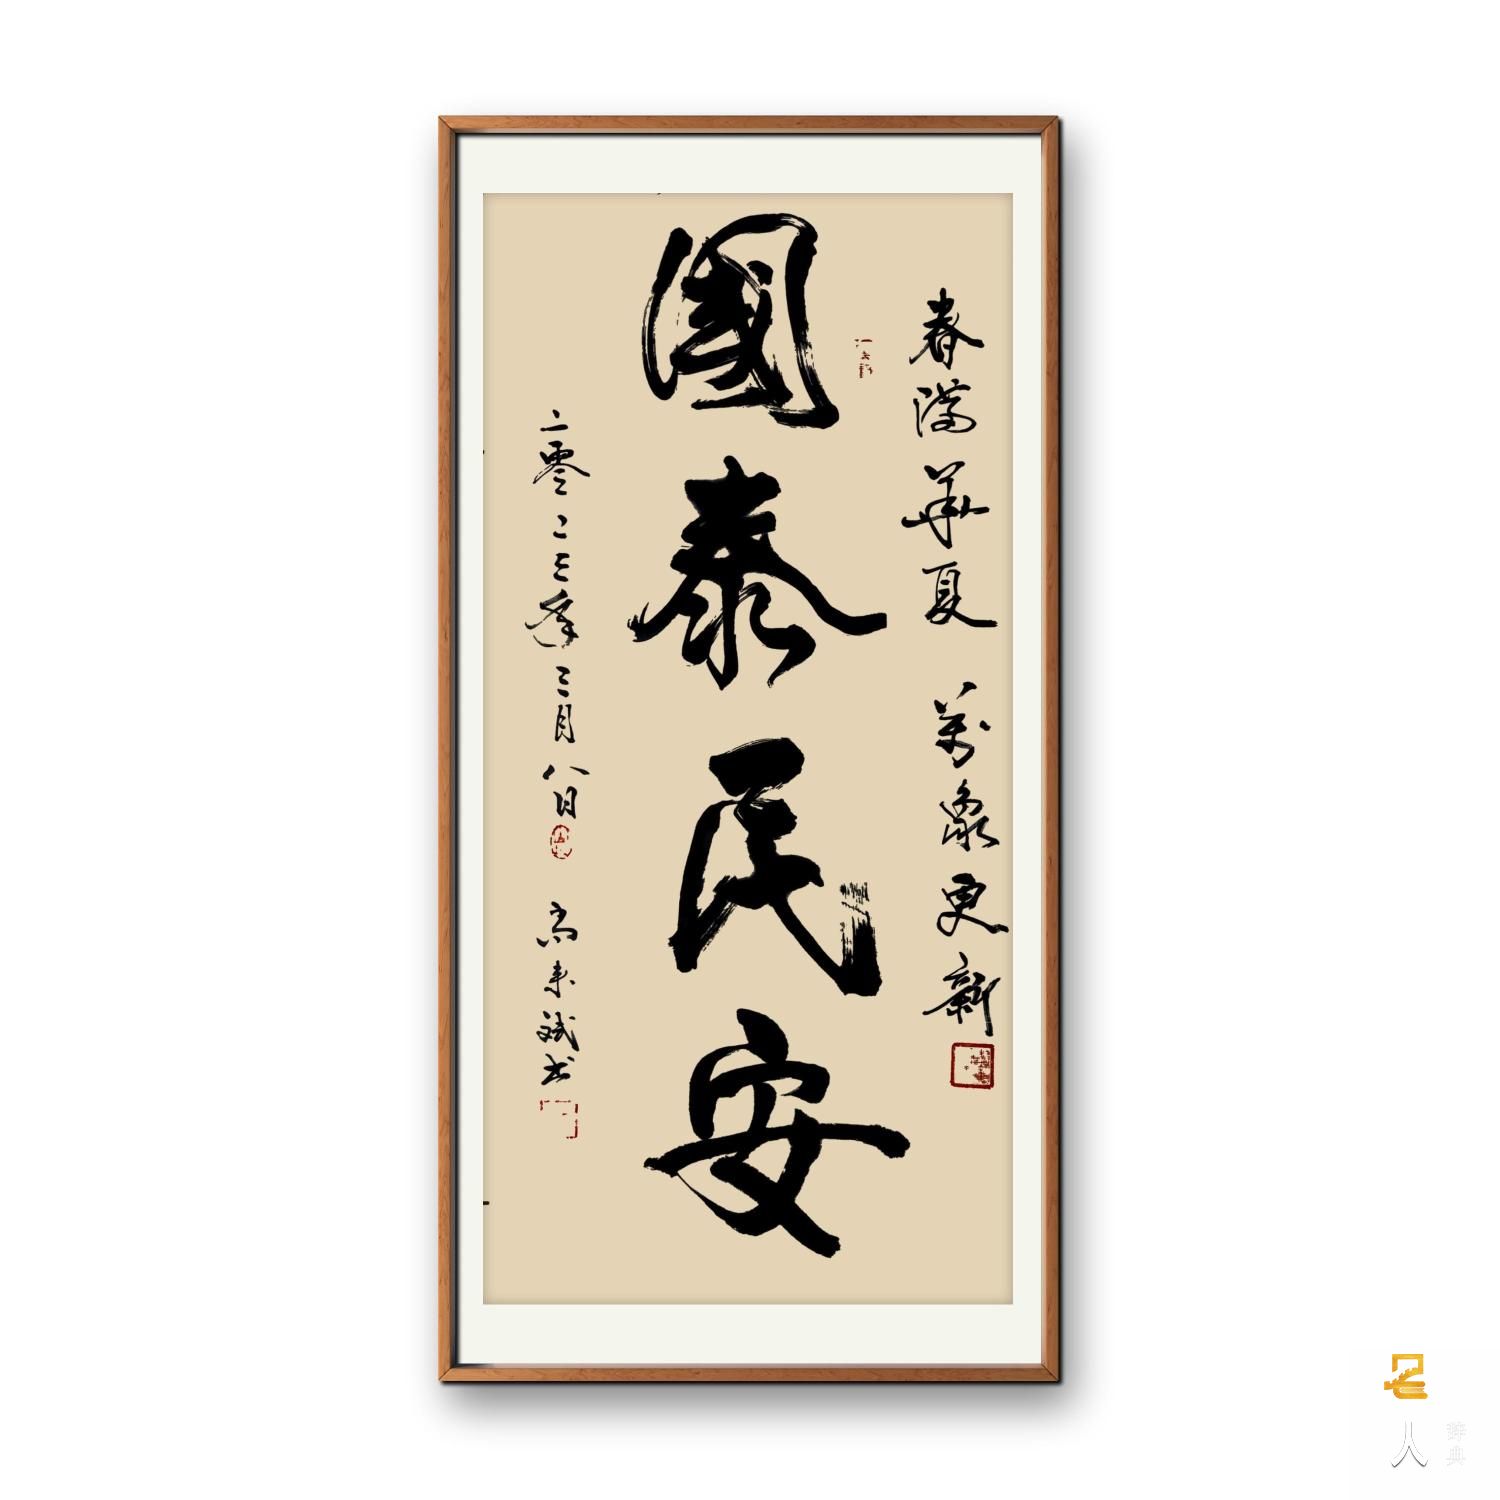 春滿華夏 萬象更新
國泰民安
二零二三年三月八日
尚未斌书
人
辞典